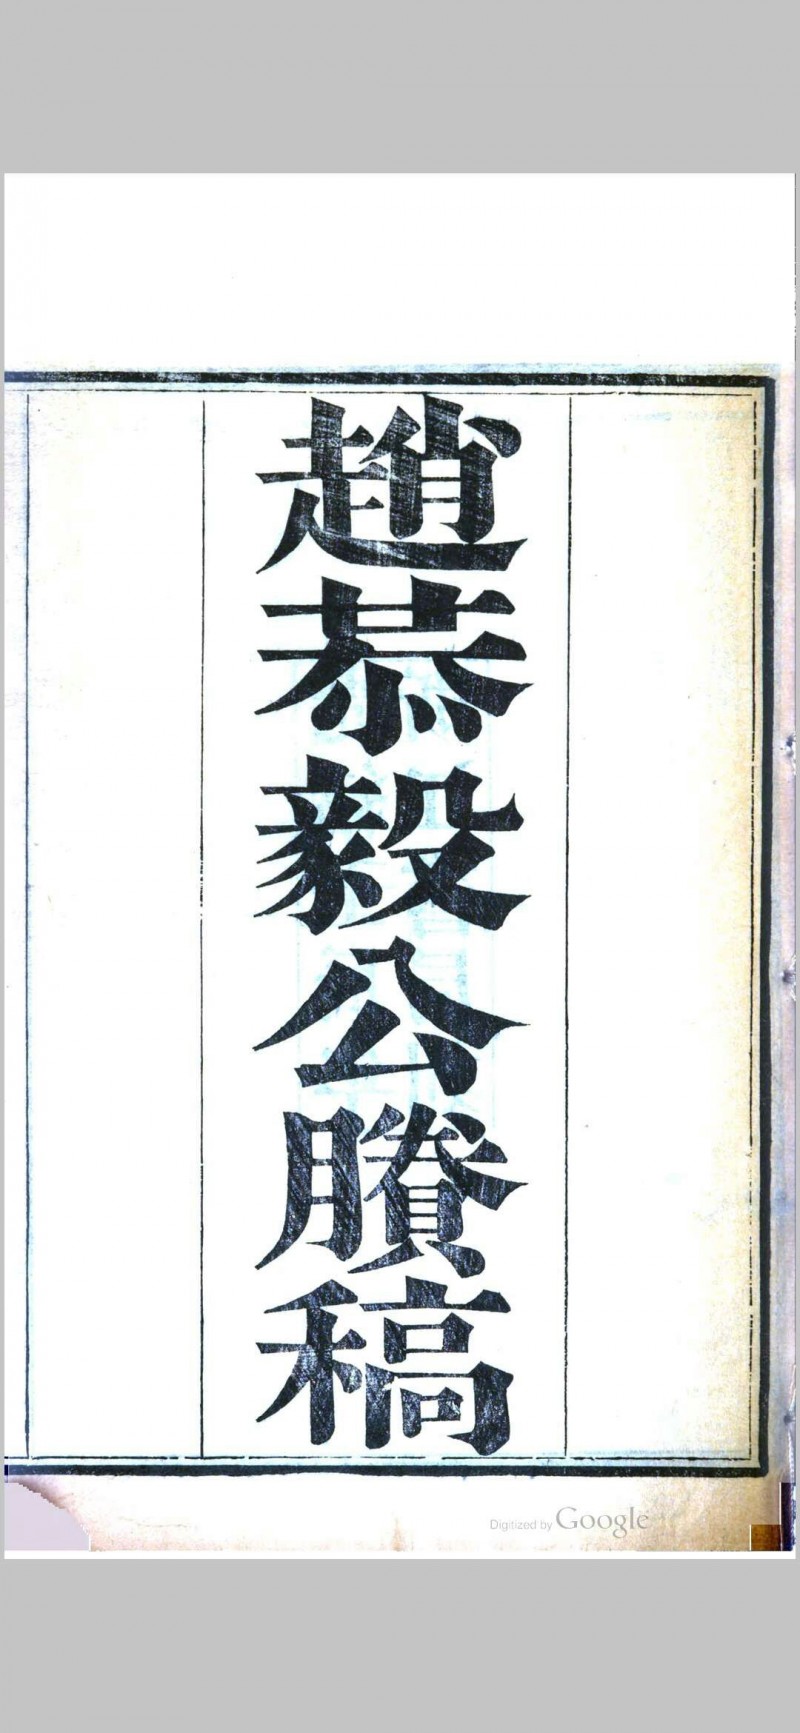 趙恭毅公賸稿
Digitized by Google